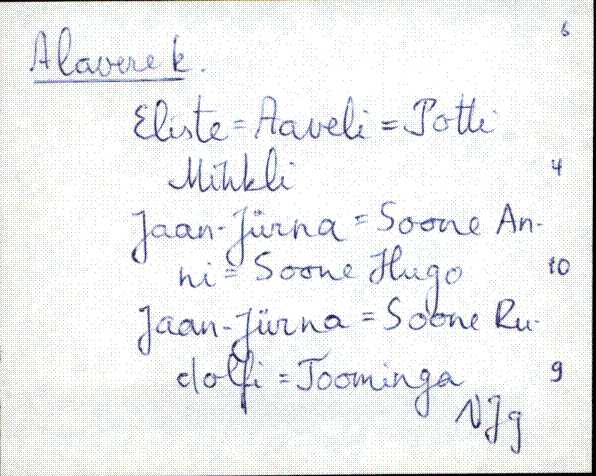 6
Alavere k.
Eliste = Aaveli = Potti
Mihkli 4
Jaan-Jürna = Soone An-
ni = Soone Hugo 10
Jaan-Jürna = Soone Ru-
dolfi = Toominga 9
VJg